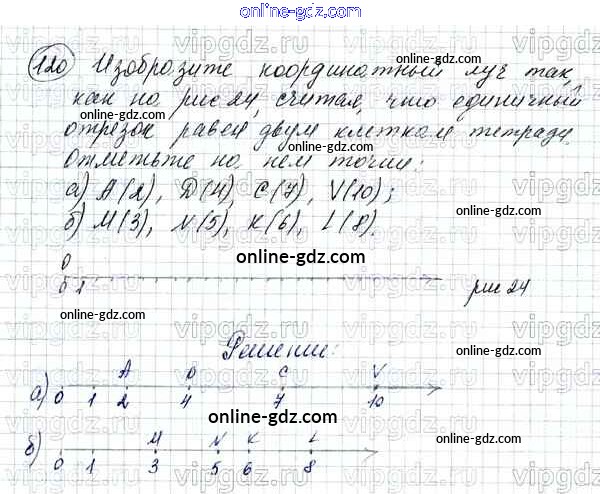 online-gdz.com
120 Изобразите координатный луч так,
как на рис 24, считая, что единичный
отрезок равен двум клеткам тетради.
Отметьте на нём точки:
а) A(2), D(4), C(7), V(10);
б) M(3), N(5), K(6), L(8).
online-gdz.com
O
0 1
рис 24
online-gdz.com
Решение:
online-gdz.com
A D C V
а) 0 1 2 4 7 10
online-gdz.com
M N K L
б) 0 1 3 5 6 8
online-gdz.com
vipgdz